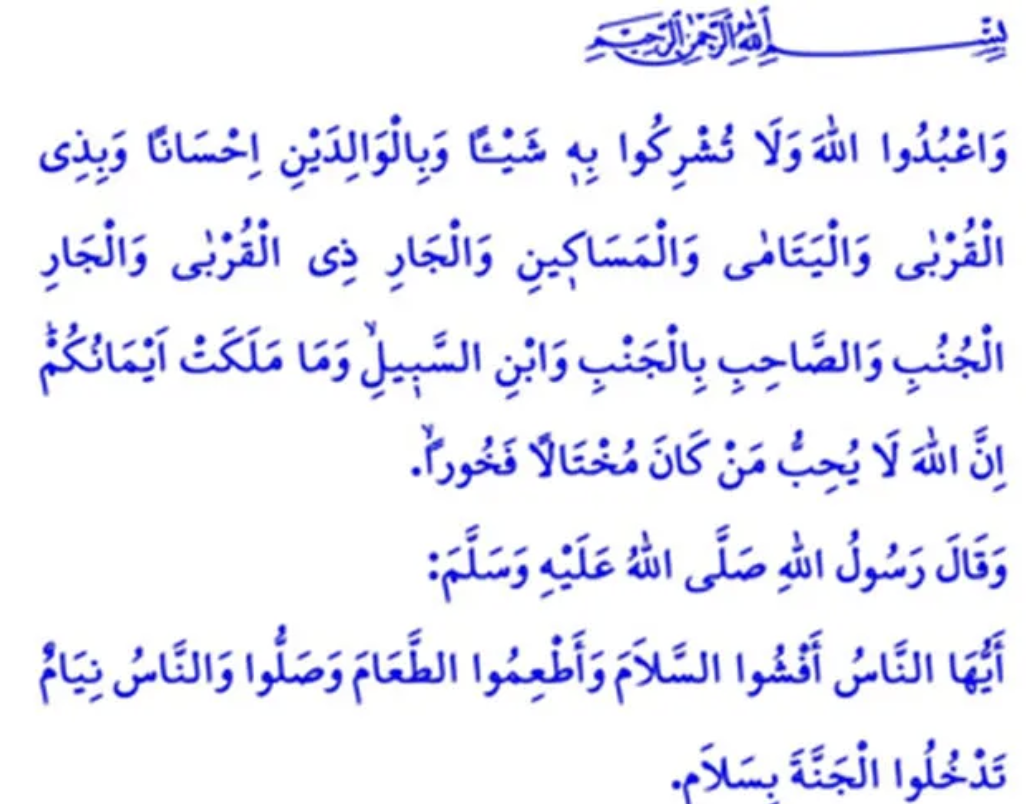 بِسْمِ اللهِ الرَّحْمٰنِ الرَّحِيمِ
وَاعْبُدُوا اللهَ وَلَا تُشْرِكُوا بِهٖ شَيْـًٔا وَبِالْوَالِدَيْنِ اِحْسَانًا وَبِذِى
الْقُرْبٰى وَالْيَتَامٰى وَالْمَسَاكٖينِ وَالْجَارِ ذِى الْقُرْبٰى وَالْجَارِ
الْجُنُبِ وَالصَّاحِبِ بِالْجَنْبِ وَابْنِ السَّبٖيلِۙ وَمَا مَلَكَتْ اَيْمَانُكُمْؕ
اِنَّ اللهَ لَا يُحِبُّ مَنْ كَانَ مُخْتَالًا فَخُورًاۙ.
وَقَالَ رَسُولُ اللهِ صَلَّى اللهُ عَلَيْهِ وَسَلَّمَ:
أَيُّهَا النَّاسُ أَفْشُوا السَّلاَمَ وَأَطْعِمُوا الطَّعَامَ وَصَلُّوا وَالنَّاسُ نِيَامٌ
تَدْخُلُوا الْجَنَّةَ بِسَلاَمٍ.